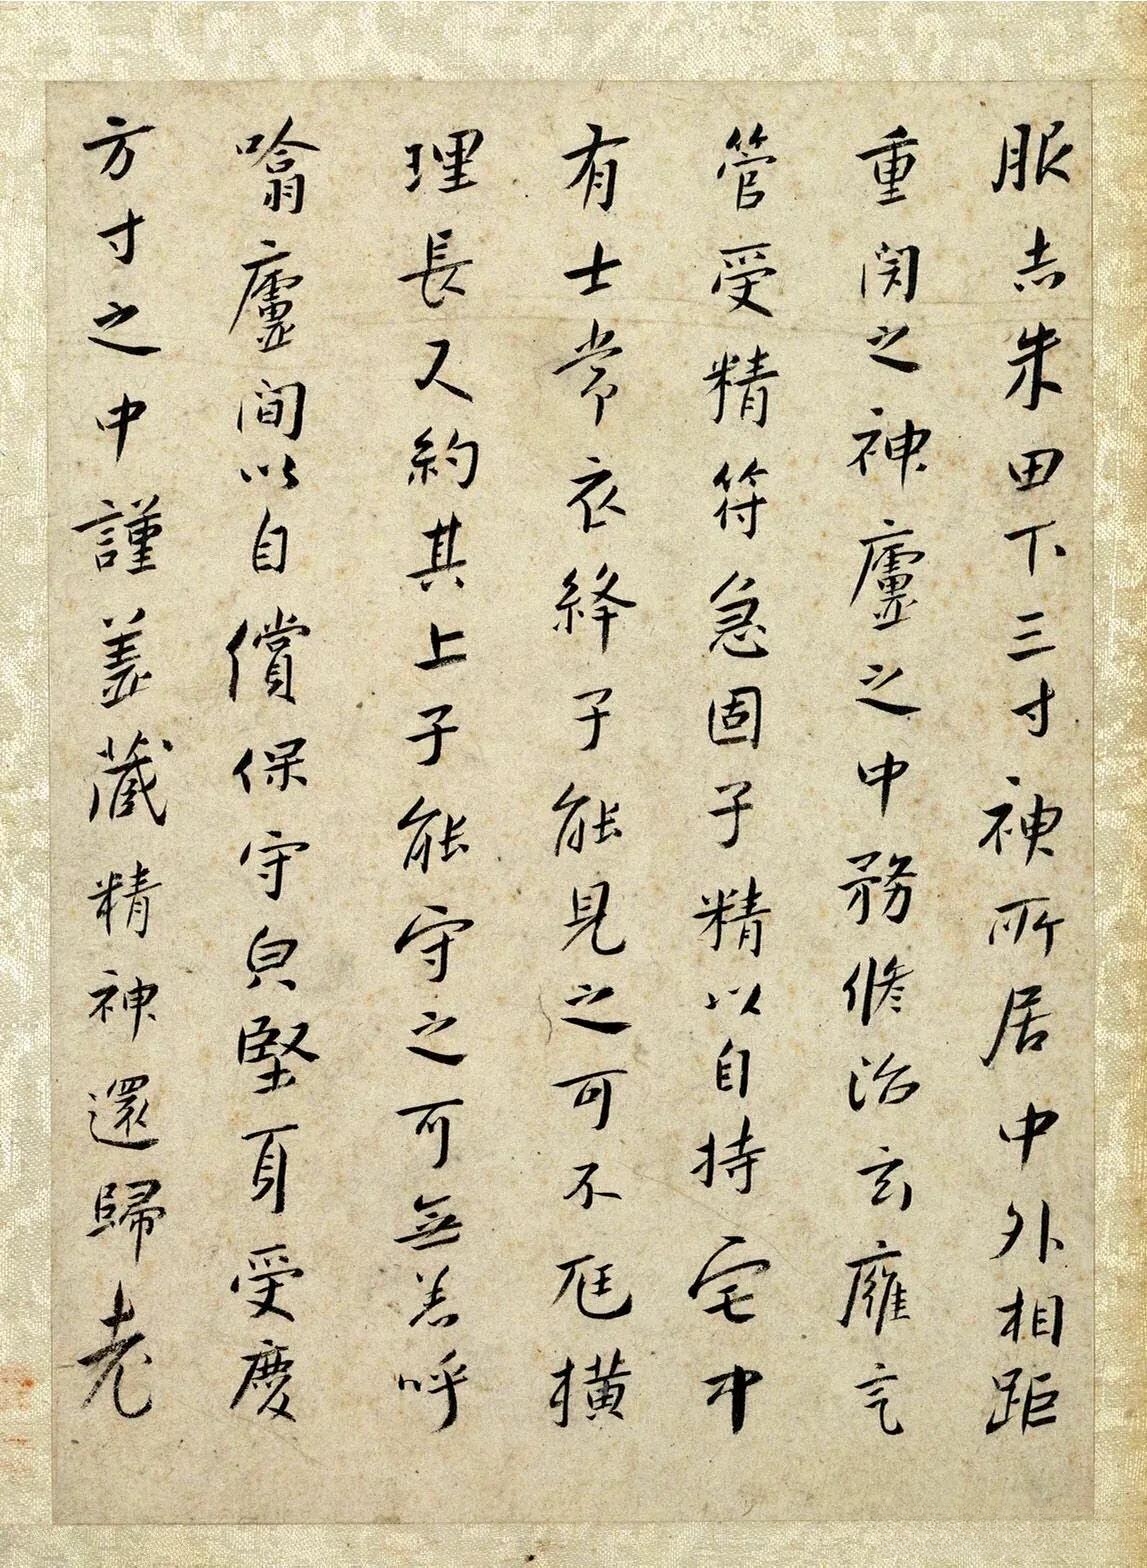 服志朱田下三寸神所居中外相距
重閇之神廬之中務修治玄廱氣
管受精符急固子精以自持宅中
有士常衣絳子能見之可不尫橫
理長尺約其上子能守之可無恙呼
噏廬間以自償保守皃堅頁受慶
方寸之中謹盖藏精神還歸老